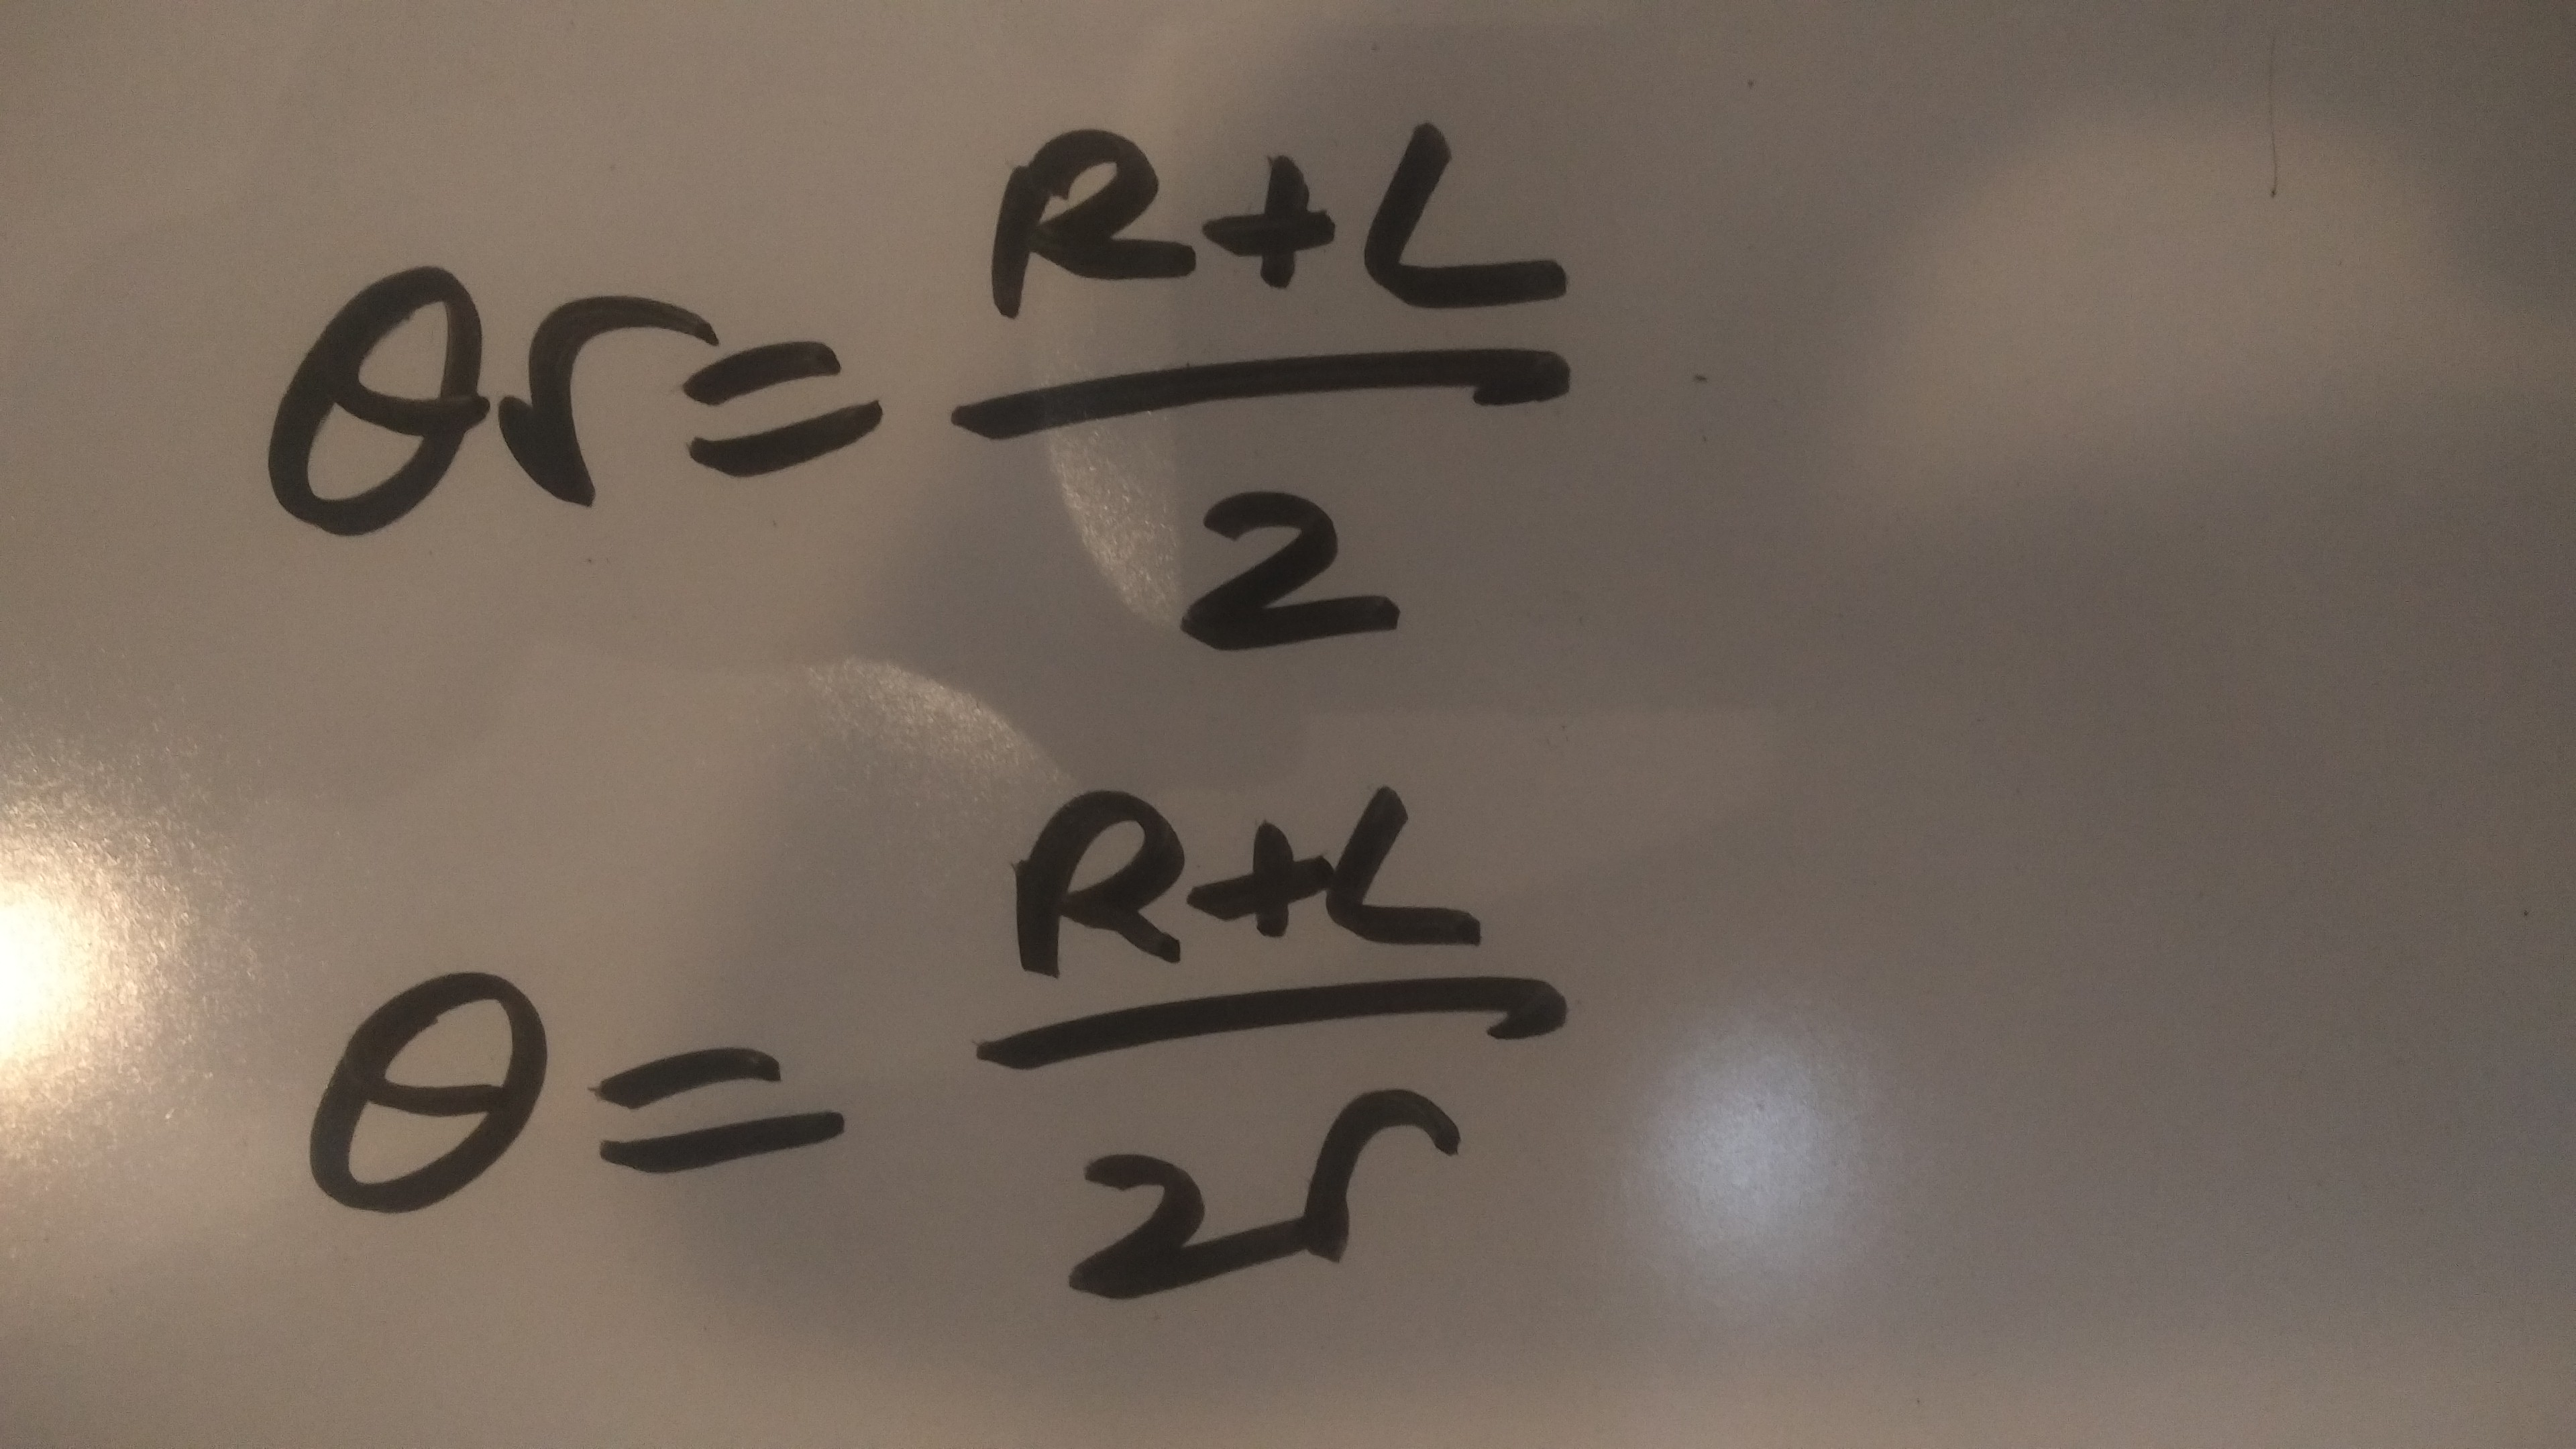 θr = (R+L)/2
θ = (R+L)/2r